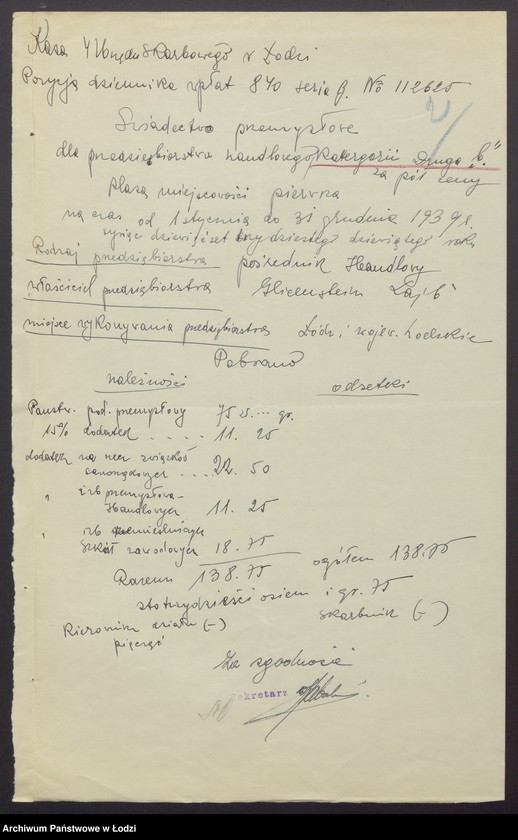 Kasa 4 Urzędu Skarbowego w Łodzi
Pozycja dziennika wpłat 840 seria f. No 112625
Świadectwo przemysłowe
dla przedsiębiorstwa handlowego Kategorii Druga „b."
za pół ceny
Klasa miejscowości pierwsza
na czas od 1 stycznia do 31 grudnia 1939 r.
tysiąc dziewięćset trzydziestego dziewiątego roku
Rodzaj przedsiębiorstwa pośrednik Handlowy
właściciel przedsiębiorstwa Glicenstein Lajb
miejsce wykonywania przedsiębiorstwa Łódź, wojew. Łodzkie
Pobrano
należności odsetki
Państw. pod. przemysłowy 75 zł. ... gr.
15% dodatek . . . . 11. 25
dodatek na rzecz związków
samorządowych . . . 22. 50
" izb przemysłowo-
Handlowych 11. 25
" izb rzemieślniczych
Szkół zawodowych 18. 75
Razem 138. 75 ogółem 138.75
sto trzydzieści osiem i gr. 75
Kierownik działu (-) Skarbnik (-)
pieczęć
Za zgodność
Sekretarz
Archiwum Państwowe w Łodzi